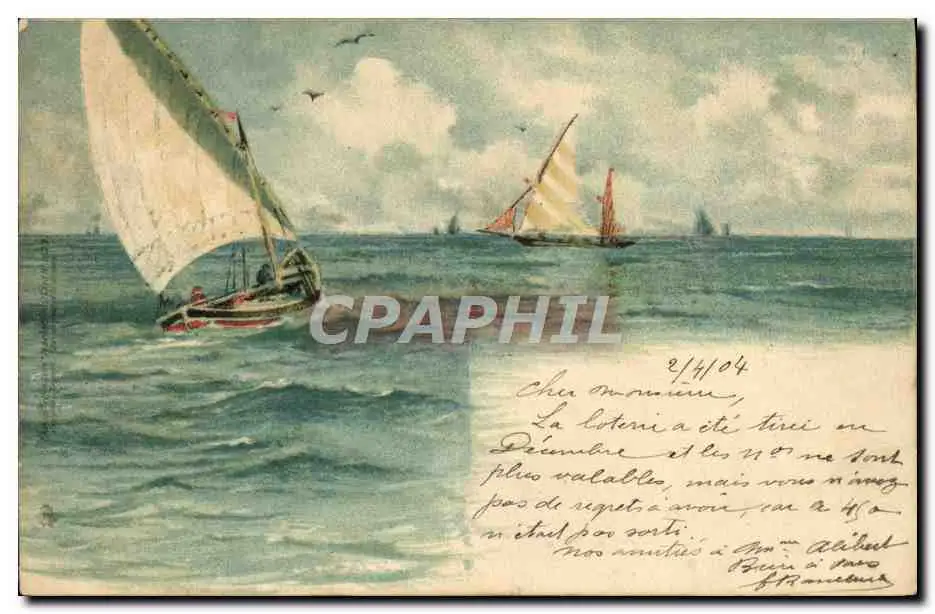 CPAPHIL
2/4/04
Cher monsieur,
La loterie a été tirée en
Décembre et les nos ne sont
plus valables, mais vous n'avez
pas de regrets à avoir, car le
n'était pas sorti.
Nos amitiés à Mme Alibert
à vous